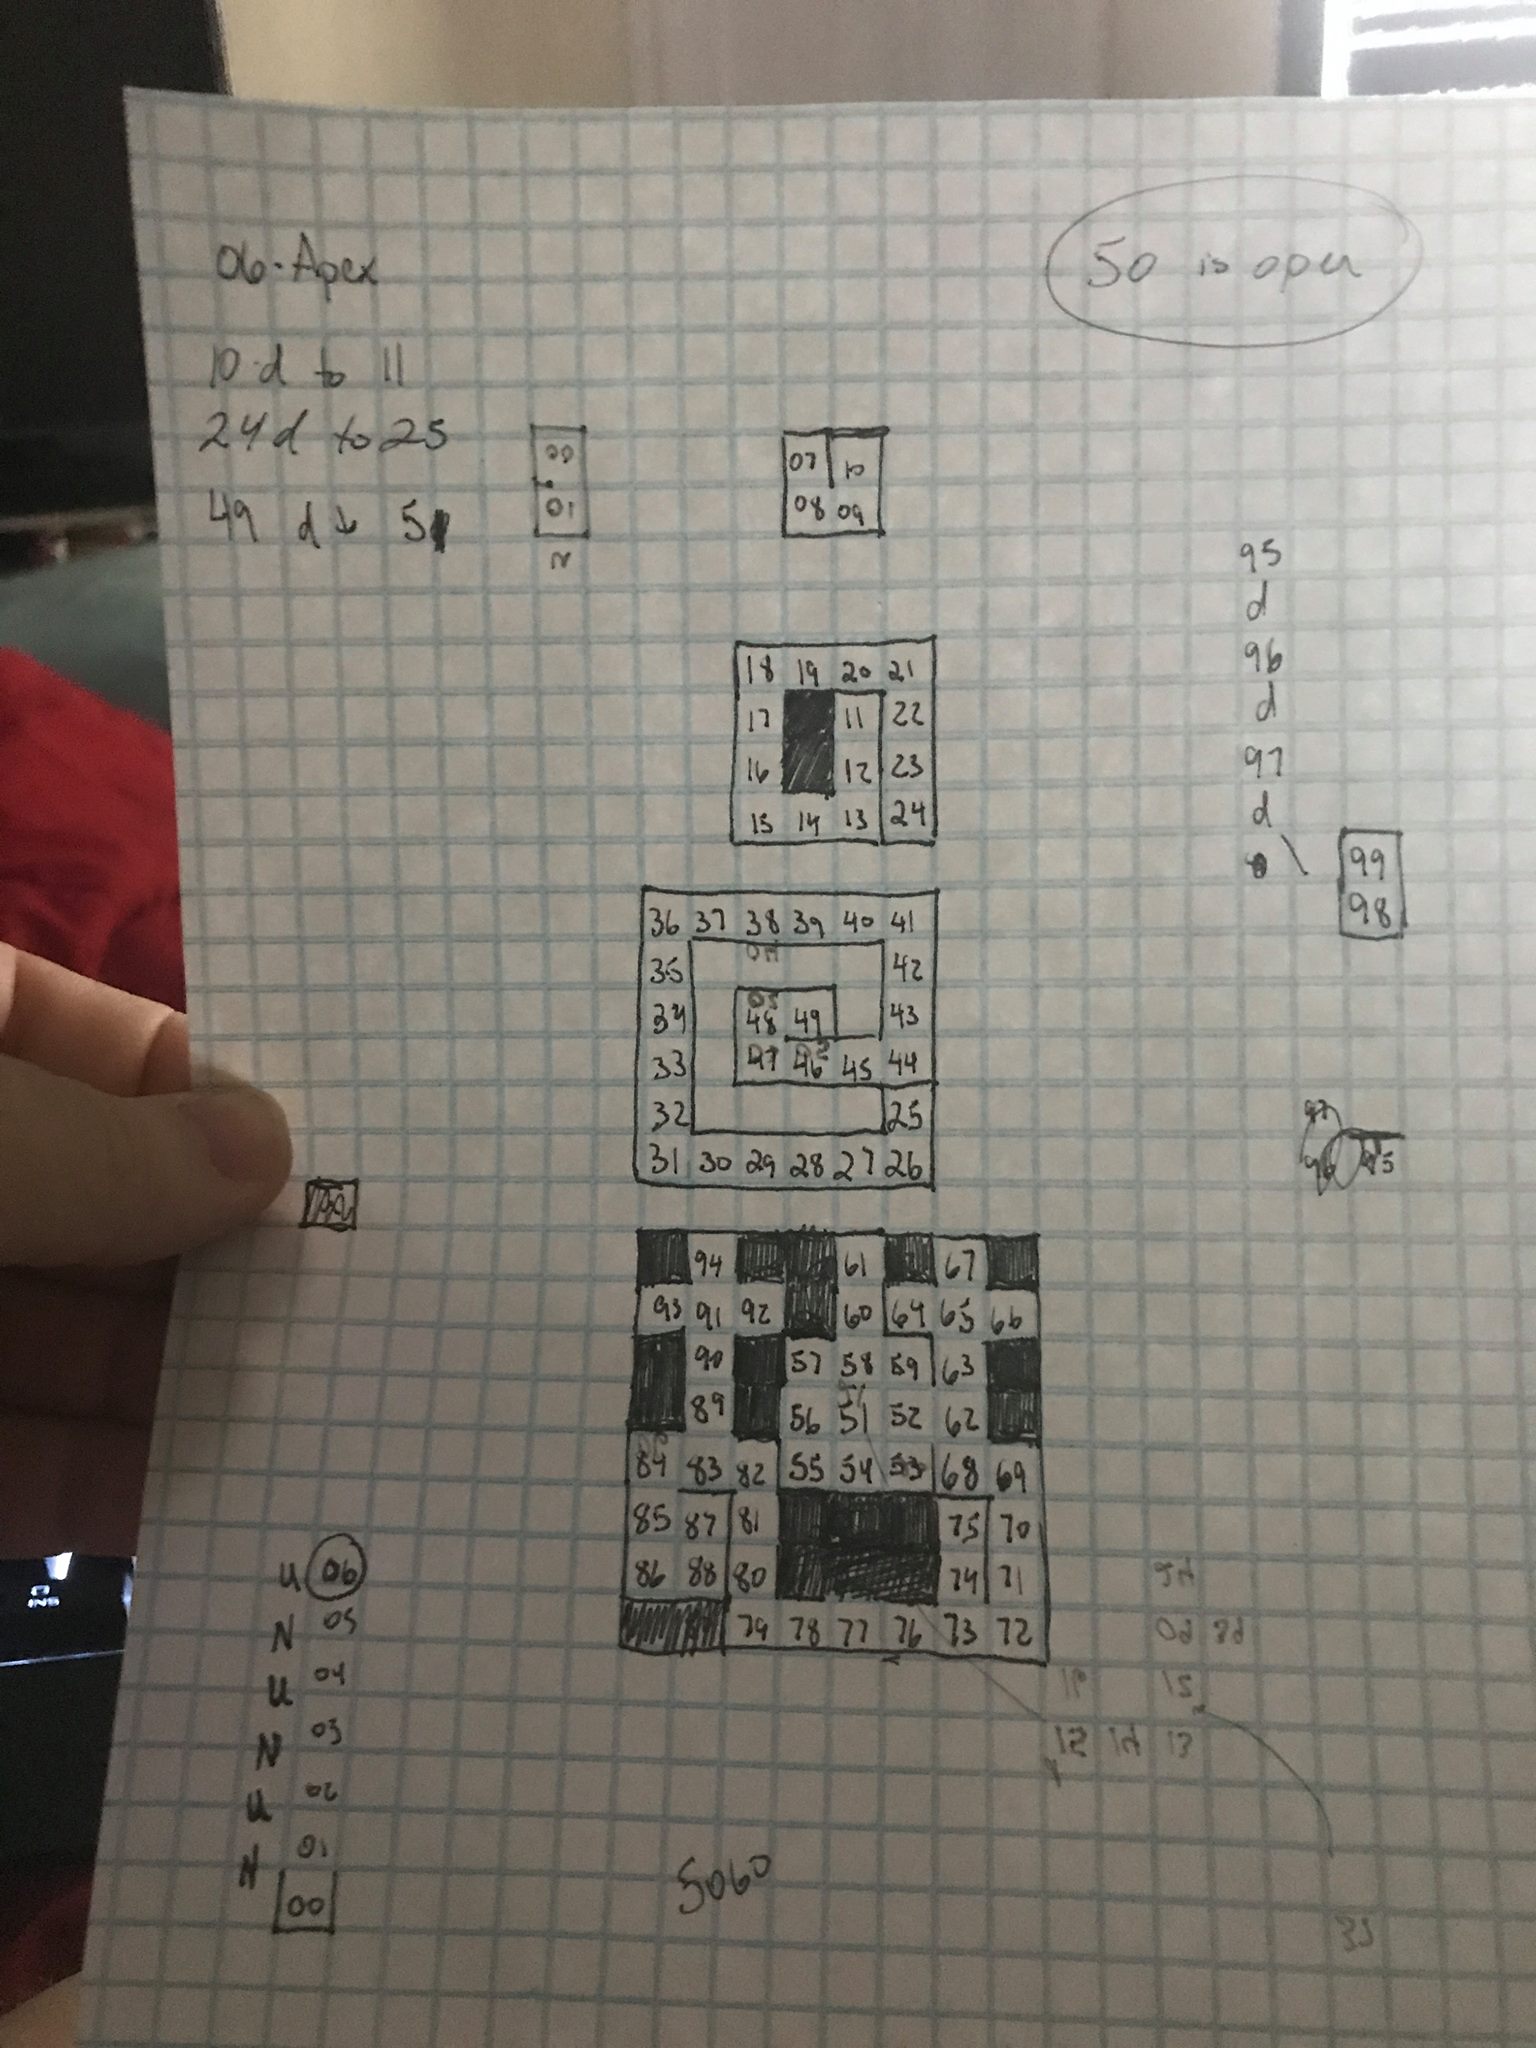 06-Apex
50 is open
10 d to 11
24d to 25
49 d 5
00
01
N
07 10
08 09
18 19 20 21
17 11 22
16 12 23
15 14 13 24
95
d
96
d
97
d
99
98
36 37 38 39 40 41
35 42
34 48 49 43
33 47 46 45 44
32 25
31 30 29 28 27 26
94 61 67
93 91 92 60 64 65 66
90 57 58 59 63
89 56 51 52 62
84 83 82 55 54 53 68 69
85 87 81 75 70
86 88 80 74 71
79 78 77 76 73 72
97
96 95
U 06
N 05
U 04
N 03
U 02
N 01
00
5060